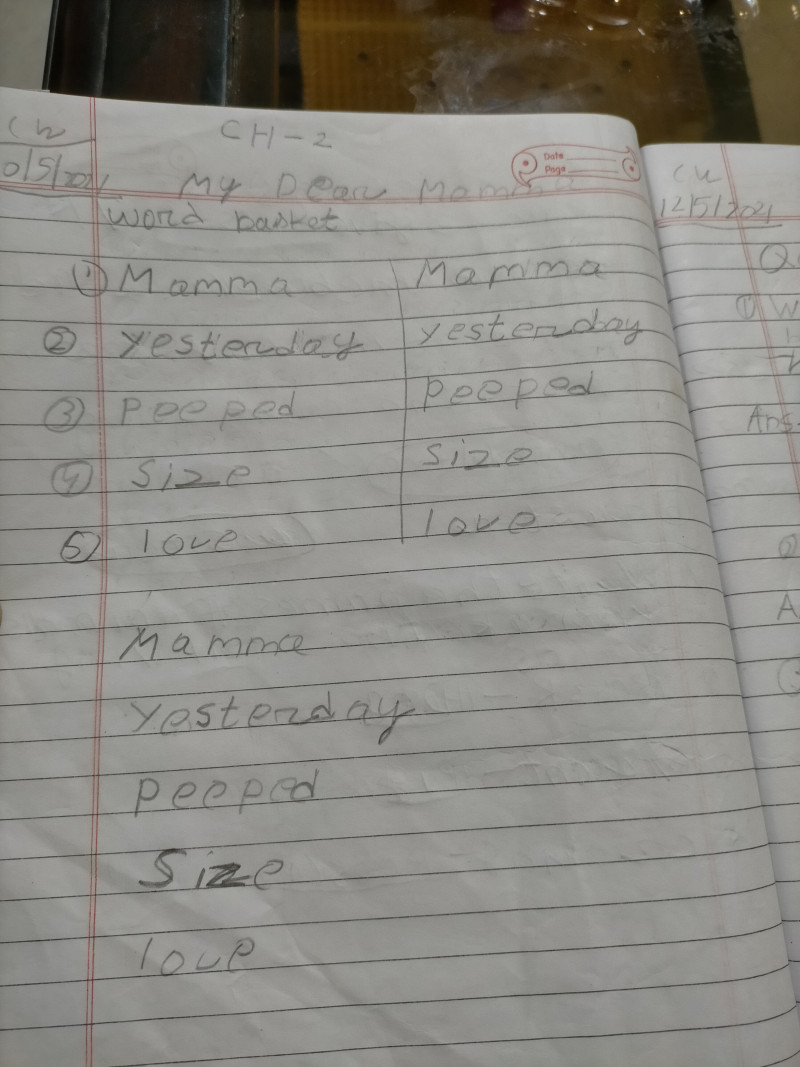 CW
CH-2
Date
Page
0/5/2021
My Dear Mamma
word basket
① Mamma Mamma
② yesterday yesterday
③ peeped peeped
④ size size
⑤ love love
Mamma
yesterday
peeped
Size
love
CW
12/5/2021
Q
① W
Ans-
A